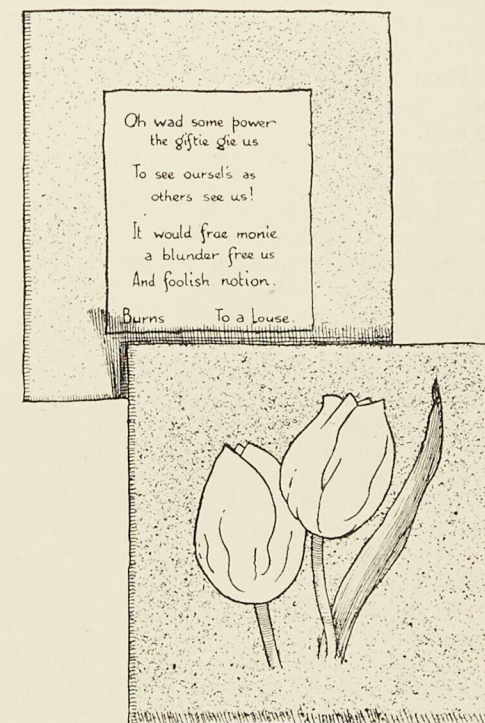 Oh wad some power
the giftie gie us
To see oursel's as
others see us!
It would frae monie
a blunder free us
And foolish notion.
Burns To a Louse.